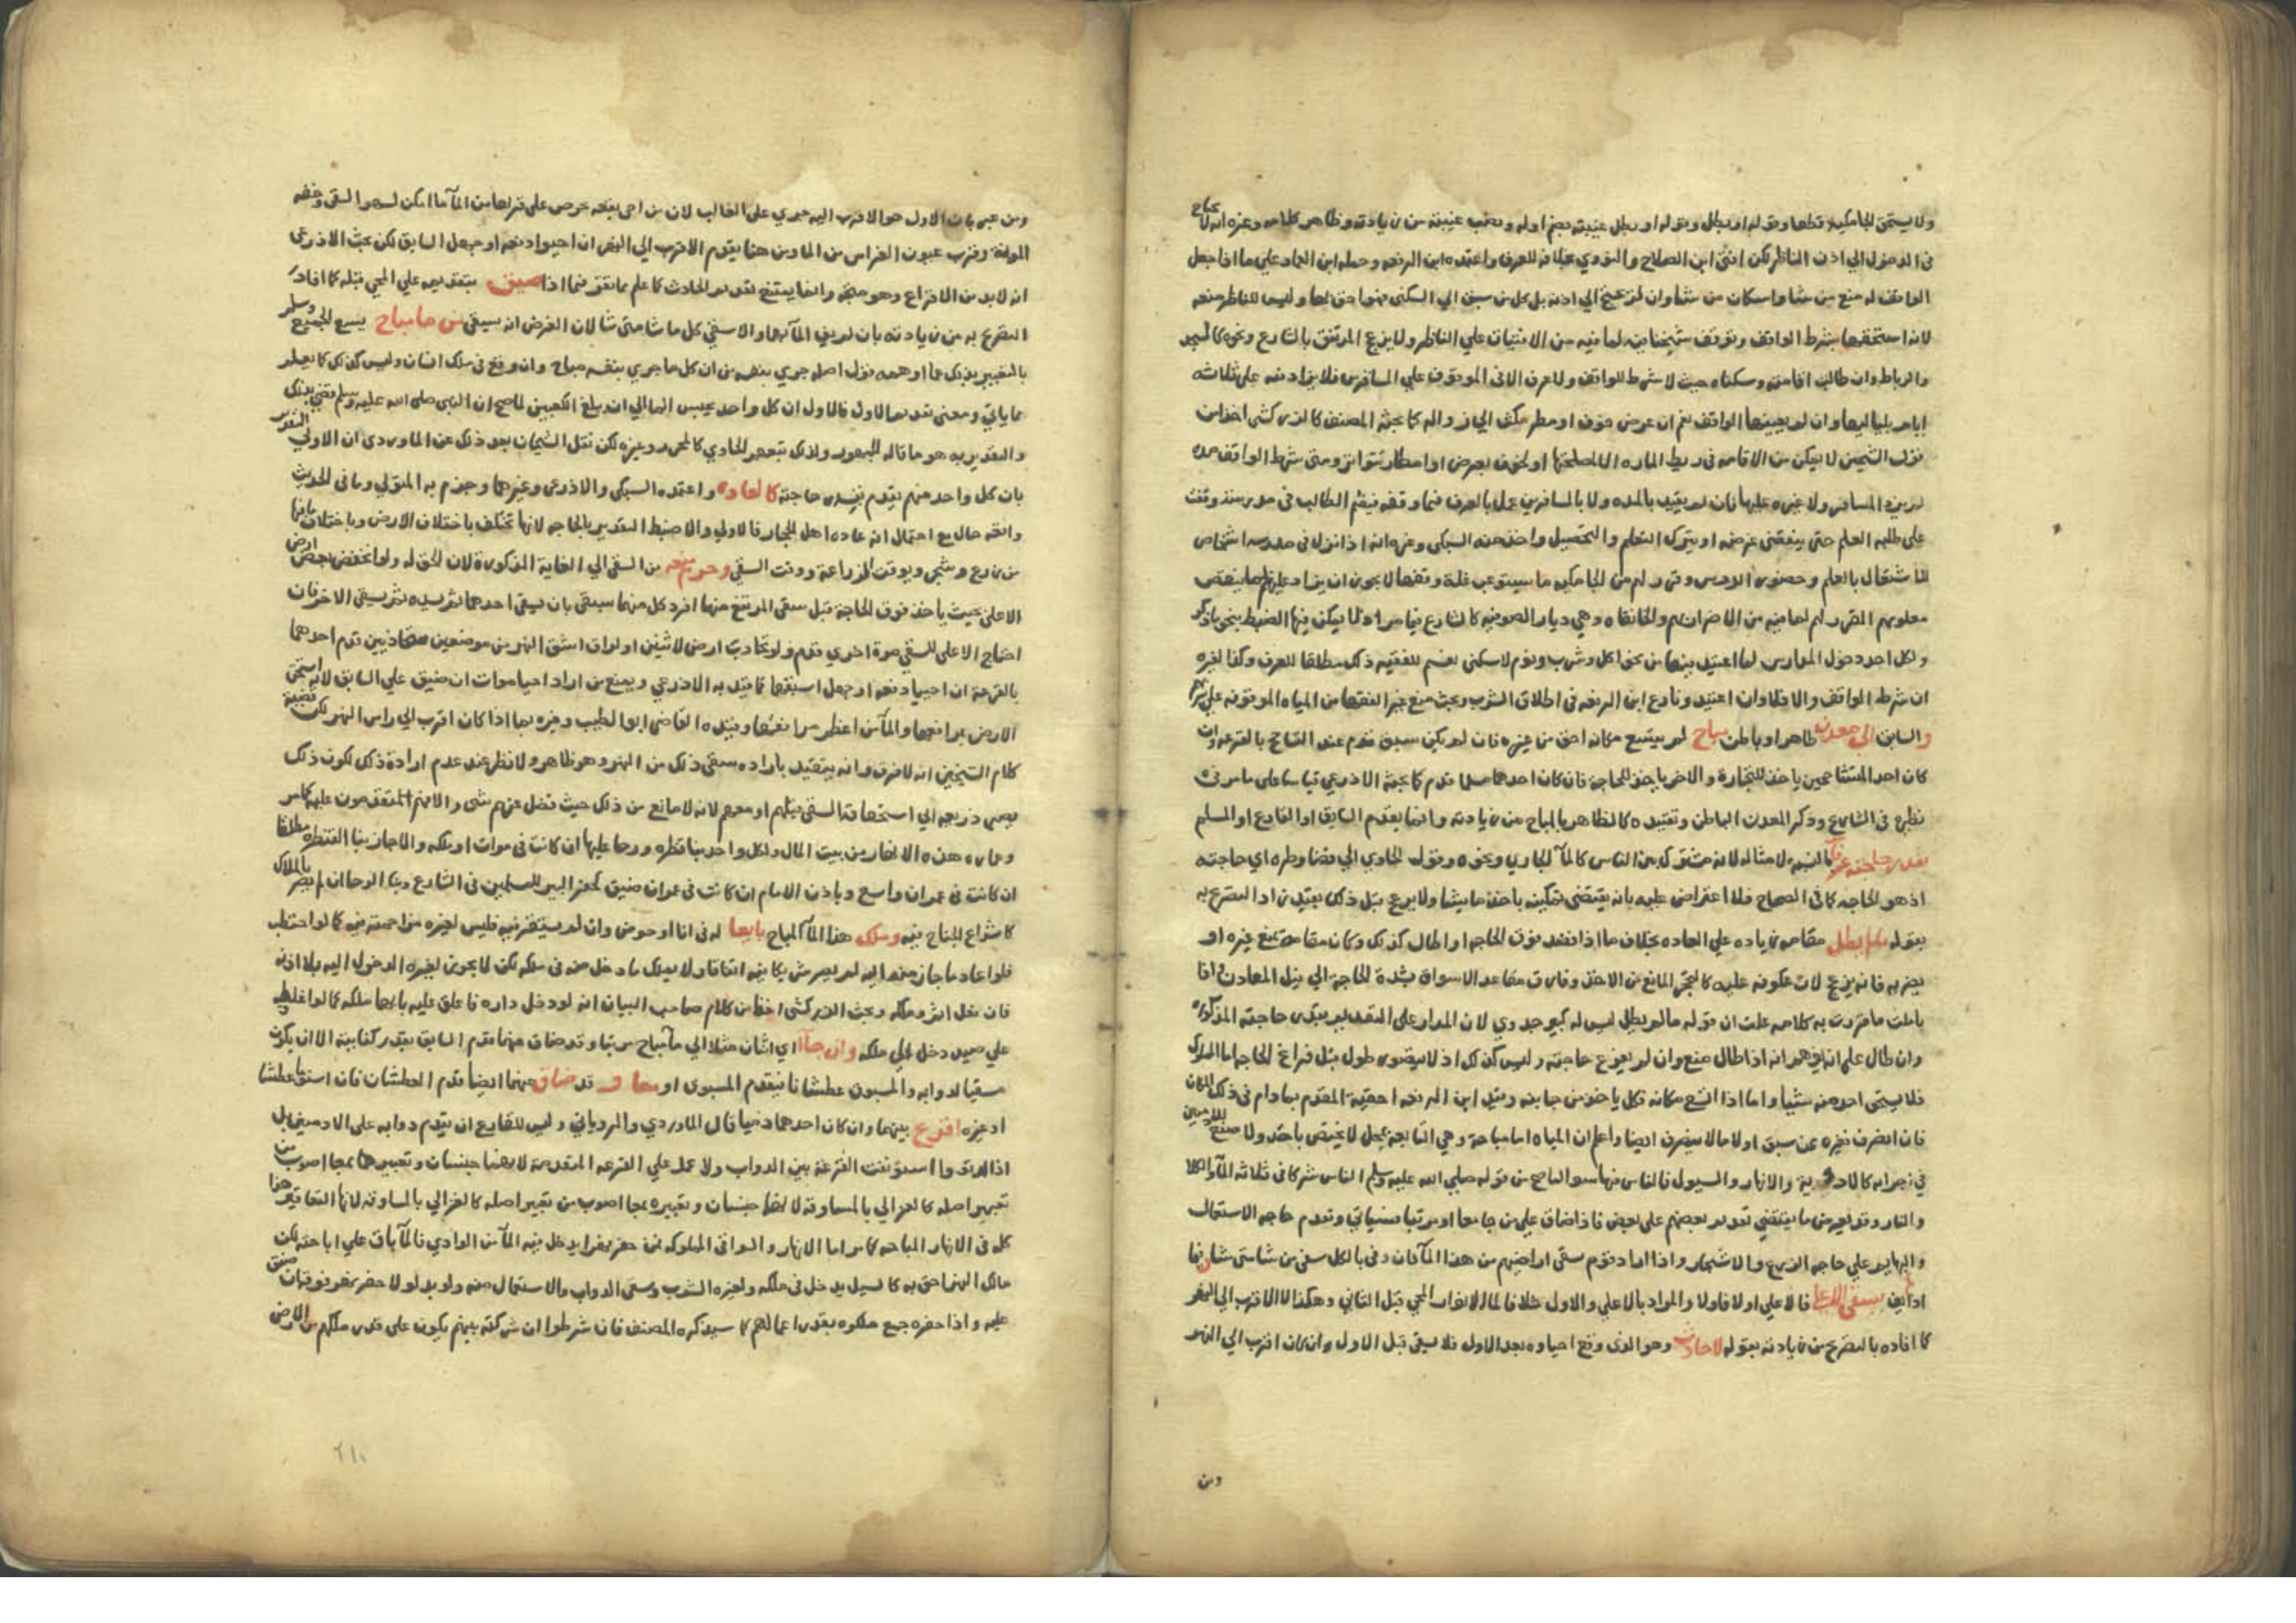 ولا يستحق الجامكية قطعا وقوله او يطل وقوله او يطل غيبته بضم اوله ونصب غيبته من زيادته وظاهر كلامه وغيره انه لا يحتاج
في الدخول الي اذن الناظر لكن افتى ابن الصلاح والنووي بخلافه للعرف واعتمده ابن الرفعه وحمله ابن العماد علي ما اذا جعل
الواقف له منع من شا واسكان من شا وان لم الي اذنه بل كل من سبق الي السكنى فهو احق بها وليس للناظر منعه
لانه استحقها بشرط الواقف وتوقف شيخنا فيه لما فيه من الافتيات علي الناظر ولا يزعج المرتفق بالشارع ونحوه كالمسجد
والرباط وان طالت اقامته وسكناه حيث لا شرط للواقف ولا عرف الا في الموقوف علي المسافرين فلا يزاد منه على ثلاثة
ايام بلياليها وان لم يعينها الواقف نعم ان عرض خوف او مطر مكث الي زواله كما بحثه المصنف كالزركشي اخذا من
قول الشيخين لا يمكن من الاقامه في ربط الماره الا لمصلحتها او لخوف يعرض او امطار تتواتر ومتى شرط الواقف مده
لم يزد المسافر ولا غيره عليها فان لم يقيد بالمده ولا بالمسافرين عمل بالعرف فيما وقفه فيقيم الطالب في مدرسة وقفت
على طلبة العلم حتى ينقضي غرضه او يترك التعلم والتحصيل واخذ منه السبكي وغيره انه اذا نزل في مدرسه اشخاص
للاشتغال بالعلم وحضور الدرس وقرر لهم من الجامكيه ما يستوعب غلة وقفها لا يجوز ان يزاد عليهم ما ينقص
معلومهم المقرر لهم لما فيه من الاضرار بهم والخانقاه وهي ديار الصوفيه كالشارع فيما مر ان لم يمكن فيها الضبط بنحو ما ذكر
ولكل احد دخول المدارس لما اعتيد فيها من نحو اكل وشرب ونوم لا سكنى نعم للفقيه ذلك مطلقا للعرف وكذا لغيره
ان شرط الواقف والا فلا وان اعتيد ونازع ابن الرفعه في اطلاق الشرب وبحث منع غير الفقها من المياه الموقوفه علي شربهم
والسابق الى معدن ظاهر او باطن مباح لم يتسع مكانه احق من غيره فان لم يكن سبق قدم عند التشاح بالقرعه وان
كان احد المتشاحين ياخذ للتجارة والاخر ياخذ للحاجة فان كان احدهما مسلما قدم كما بحثه الاذرعي قياسا على ما مر في
نظيره في الشارع وذكر المعدن الباطن وتقييده كالظاهر بالمباح من زيادته وانما يقدم السابق او القارع او المسلم
بقدر حاجته عرفا بالنسبه لامثاله لانه مشترك بين الناس كالمآ الجاري ونحوه وقول الحاوي الي قضا وطره اي حاجته
اذ هو الحاجه كما في الصحاح فلا اعتراض عليه بانه يقتضي تمكينه باخذ ما يشا ولا يزعج قبل ذلك بقيد زاد التصريح به
بقوله ما لم يطل مقامه زياده علي العاده بخلاف ما اذا قصد فوق الحاجه او اطال كذلك وكان مقامه يمنع غيره او
يضر به فانه يزعج لان عكوفه عليه كالتحجر المانع من الاخذ وفارق مقاعد الاسواق بشدة الحاجة الي نيل المعادن اذا
تاملت ما قررت به كلامه علمت ان قوله ما لم يطل ليس له كبير جدوي لان المدار على التقدير بقدر حاجته المذكوره
وان طال علم انه انه اذا طال منع وان لم يفرغ حاجته وليس كذلك اذ لا يتصور طول قبل فراغ الحاجه اما المملوك
فلا يستحق احد منه شيئا واما اذا اتسع مكانه فكل ياخذ من جانبه وقيد ابن الرفعه احقية المقدم بما دام في ذلك المكان
فان انصرف فغيره ممن سبق اولا ما لا ينصرف ايضا واعلم ان المياه اما مباحة وهي النابعه بمحل لا يختص باحد ولا صنع للادميين
في اجرايه كالاودية والانهار والسيول فالناس فيها سوا لما صح من قوله صلي الله عليه وسلم الناس شركا في ثلاثه المآ والكلا
والنار وقد يعرض ما يقتضي تقديم بعضهم على بعض فاذا ضاق علي من جا معا او مرتبا فسياتي وتقدم حاجه الاستعمال
والبهايم علي حاجه الزرع والاشجار واذا اراد قوم سقي اراضيهم من هذا المآ فان وفى بالكل سقى من شا متى شا وانما
اذا يسقى الاعلي فالاعلي اولا فاولا والمراد بالاعلي والاول مثلا قال الانوار المحي قبل الثاني وهكذا لا الاقرب الي النهر
كما افاده بالتصريح من زيادته بقوله لا حادث وهو الذى وقع احياوه بعد الاول فلا يسقى قبل الاول وان كان اقرب الي النهر
ومن
ومن عبر بان الاول هو الاقرب اليه جري علي الغالب لان من احى بقعه حرص على قربها من المآ ما امكن لسهولة السقى وخفه
المونة وقرب عروق الغراس من الما ومن هنا يقدم الاقرب الي النهر ان احيوا دفعه او جهل السابق لكن بحث الاذرعي
انه لا بد من الاقراع وهو متجه وانما يمتنع تقديم الحادث كما علم مما تقرر فيما اذا ضيق بتقديمه علي المحي قبله كما افاد
التصريح به من زيادته بان لم يف المآ بهما والا سقى كل ما شا متى شا لان الفرض انه يسقى من ما مباح يسع الجميع وسلم
بالتعبير بذلك مما اوهمه قول اصله جري بنفسه من ان كل ما جري بنفسه مباح وان وقع في ملك انسان وليس كذلك كما يعلم
مما ياتي ومعنى تقديم الاول فالاول ان كل واحد يحبس الما الي ان يبلغ الكعبين لما صح ان النبي صلى الله عليه وسلم قضى بذلك
والتقدير به هو ما قاله الجمهور ولذلك تبعهم الحاوي كالمحرر وغيره لكن نقل الشيخان بعد ذلك عن الماوردي ان الاولى التقدير
بان كل واحد منهم يقدم بقدر حاجته كالعاده واعتمده السبكي والاذرعي وغيرهما وجزم به المتولي وما في الحديث
واقعه حال مع احتمال انه عاده اهل الحجاز فالاولي والاضبط التقدير بالحاجه لانها تختلف باختلاف الارض وباختلاف ما فيها
من زرع وشجر وبوقت الزراعة ووقت السقي من السقي الي الغاية المذكورة لان الحق له ولو انخفض بعض ارض
الاعلى بحيث ياخذ فوق الحاجة قبل سقى المرتفع منها افرد كل منهما بسقى بان يسقى احدهما ثم يسده ثم يسقى الاخر فان
احتاج الاعلى للسقي مرة اخري قدم ولو تحاذت ارض لاثنين او لو اراد شق النهر من موضعين متحاذيين قدم احدهما
بالقرعه ان احييا دفعه او جهل اسبقهما كما قيد به الاذرعي ويمنع من اراد احيا موات ان ضيق علي السابق لانه استحق
الارض بمرافقها والمآ من اعظم مرافقها وقيده القاضي ابو الطيب وغيره بما اذا كان اقرب الي راس النهر لكن قضية
كلام الشيخين انه لا فرق وانه يتقيد باراده سقى ذلك من النهر وهو ظاهر ولا نظر عند عدم ارادة ذلك لكون ذلك
يصير ذريعه الي استحقاقه السقى قبلهم او معهم لانه لا مانع من ذلك حيث فضل عنهم شى والا فهم المتقدمون عليه كما مر
وعماره هذه الانهار من بيت المال ولكل واحد بنا قنطره ورحا عليها ان كانت في موات او ملكه والا جاز بنا القنطره مطلقا
ان كانت في عمران واسع وباذن الامام ان كانت في عمران ضيق كحفر البير للمسلمين في الشارع وبنا الرحا ان لم يضر بالملاك
كاشراع الجناح فيه وملك هذا المآ المباح بايعا له في انا او حوض وان لم يستقر فيه فليس لغيره مزاحمته فيه كما لو احتطب
فلو اعاد ما حازه منه اليه لم يصر شريكا فيه اتفاقا ولا يملك ما دخل منه في ملكه لكن لا يجوز لغيره الدخول اليه بلا اذنه
فان دخل اثم وملكه وبحث الزركشي اخذا من كلام صاحب البيان انه لو دخل داره فاغلق عليه بابها ملكه كما لو اغلقه
علي صيد دخل الي ملكه وان جآ اي اثنان مثلا الي مآ مباح مرتبا وقد ضاق عنهما قدم السابق بقدر كفايته الا ان يكون
مسقيا لدوابه والمسبوق عطشانا فيقدم المسبوق او معا و قد ضاق عنهما ايضا قدم العطشان فان استويا عطشا
او غيره اقرع بينهما وان كان احدهما ذميا قال الماوردي والروياني وليس للقارع ان يقدم دوابه على الادميين بل
اذا استونفت القرعة بين الدواب ولا عمد علي القرعه المتقدمة لانهما جنسان وتعبيره بمعا اصوب من
تعبير اصله كالغزالي بالمساوقه لانها التعاقب هذا
كله في الانهار المباحه كما مر اما الانهار والسواقي المملوكه فمن حفر نهرا يدخل فيه المآ من الوادي فالمآ باق علي اباحته لكن
مالك النهر احق به كالسيل يدخل في ملكه ولغيره الشرب وسقي الدواب والاستعمال منه ولو بدلو لا حفر نهر فوق ان ضيق
عليه واذا حفره جمع ملكوه بقدر اعمالهم كما سيذكره المصنف فان شرطوا ان شركته بينهم يكون على قدر ملكهم من الارض
٢١٠